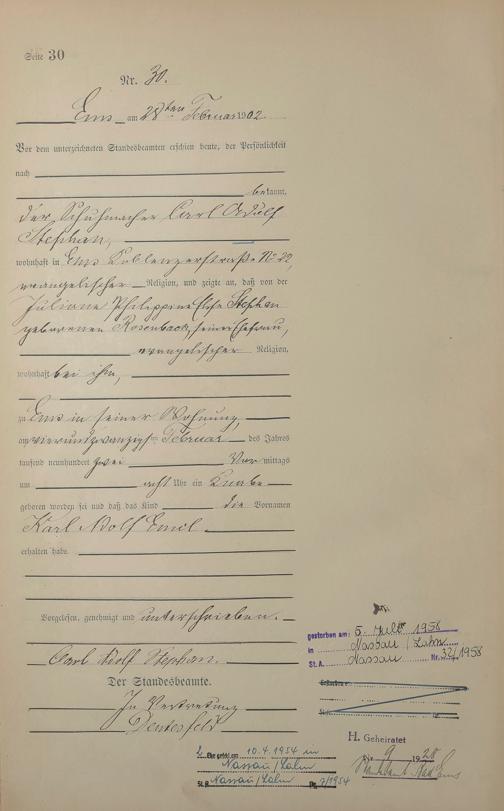 Seite 30
Nr. 30.
Ems am 28ten Februar 1902.
Vor dem unterzeichneten Standesbeamten erschien heute, der Persönlichkeit
nach
bekannt,
der Schuhmacher Carl Adolf
Stephan,
wohnhaft in Ems Coblenzerstraße No 22,
evangelischer Religion, und zeigte an, daß von der
Juliane Philippine Elise Stephan
geborenen Rosenbach, seiner Ehefrau,
evangelischer Religion,
wohnhaft bei ihm,
zu Ems in seiner Wohnung,
am vierundzwanzigsten Februar des Jahres
tausend neunhundert zwei Vormittags
um acht Uhr ein Knabe
geboren worden sei und daß das Kind die Vornamen
Karl Adolf Emil
erhalten habe.
Vorgelesen, genehmigt und unterschrieben.
Carl Adolf Stephan.
Der Standesbeamte.
In Vertretung
gestorben am: 5. Juli 1958
in Nassau / Lahn
St. A. Nassau Nr. 32/1958
H. Geheiratet
9 1928
Standesamt Bad Ems
2. Ehe geschl. am 10.4.1954 in
Nassau / Lahn
St. A. Nassau / Lahn Nr. 7/1954